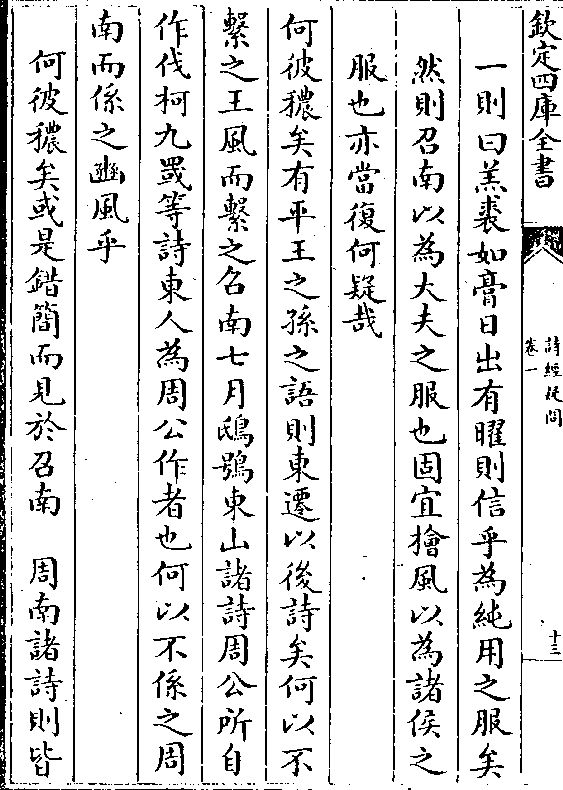 欽定四庫全書
詩經疑問
卷一
十三
一則曰羔裘如膏日出有曜則信乎為純用之服矣
然則召南以為大夫之服也固宜檜風以為諸侯之
服也亦當復何疑哉
何彼穠矣有平王之孫之語則東遷以後詩矣何以不
繫之王風而繫之召南七月鴟鴞東山諸詩周公所自
作伐柯九罭等詩東人為周公作者也何以不係之周
南而係之豳風乎
何彼穠矣或是錯簡而見於召南　周南諸詩則皆